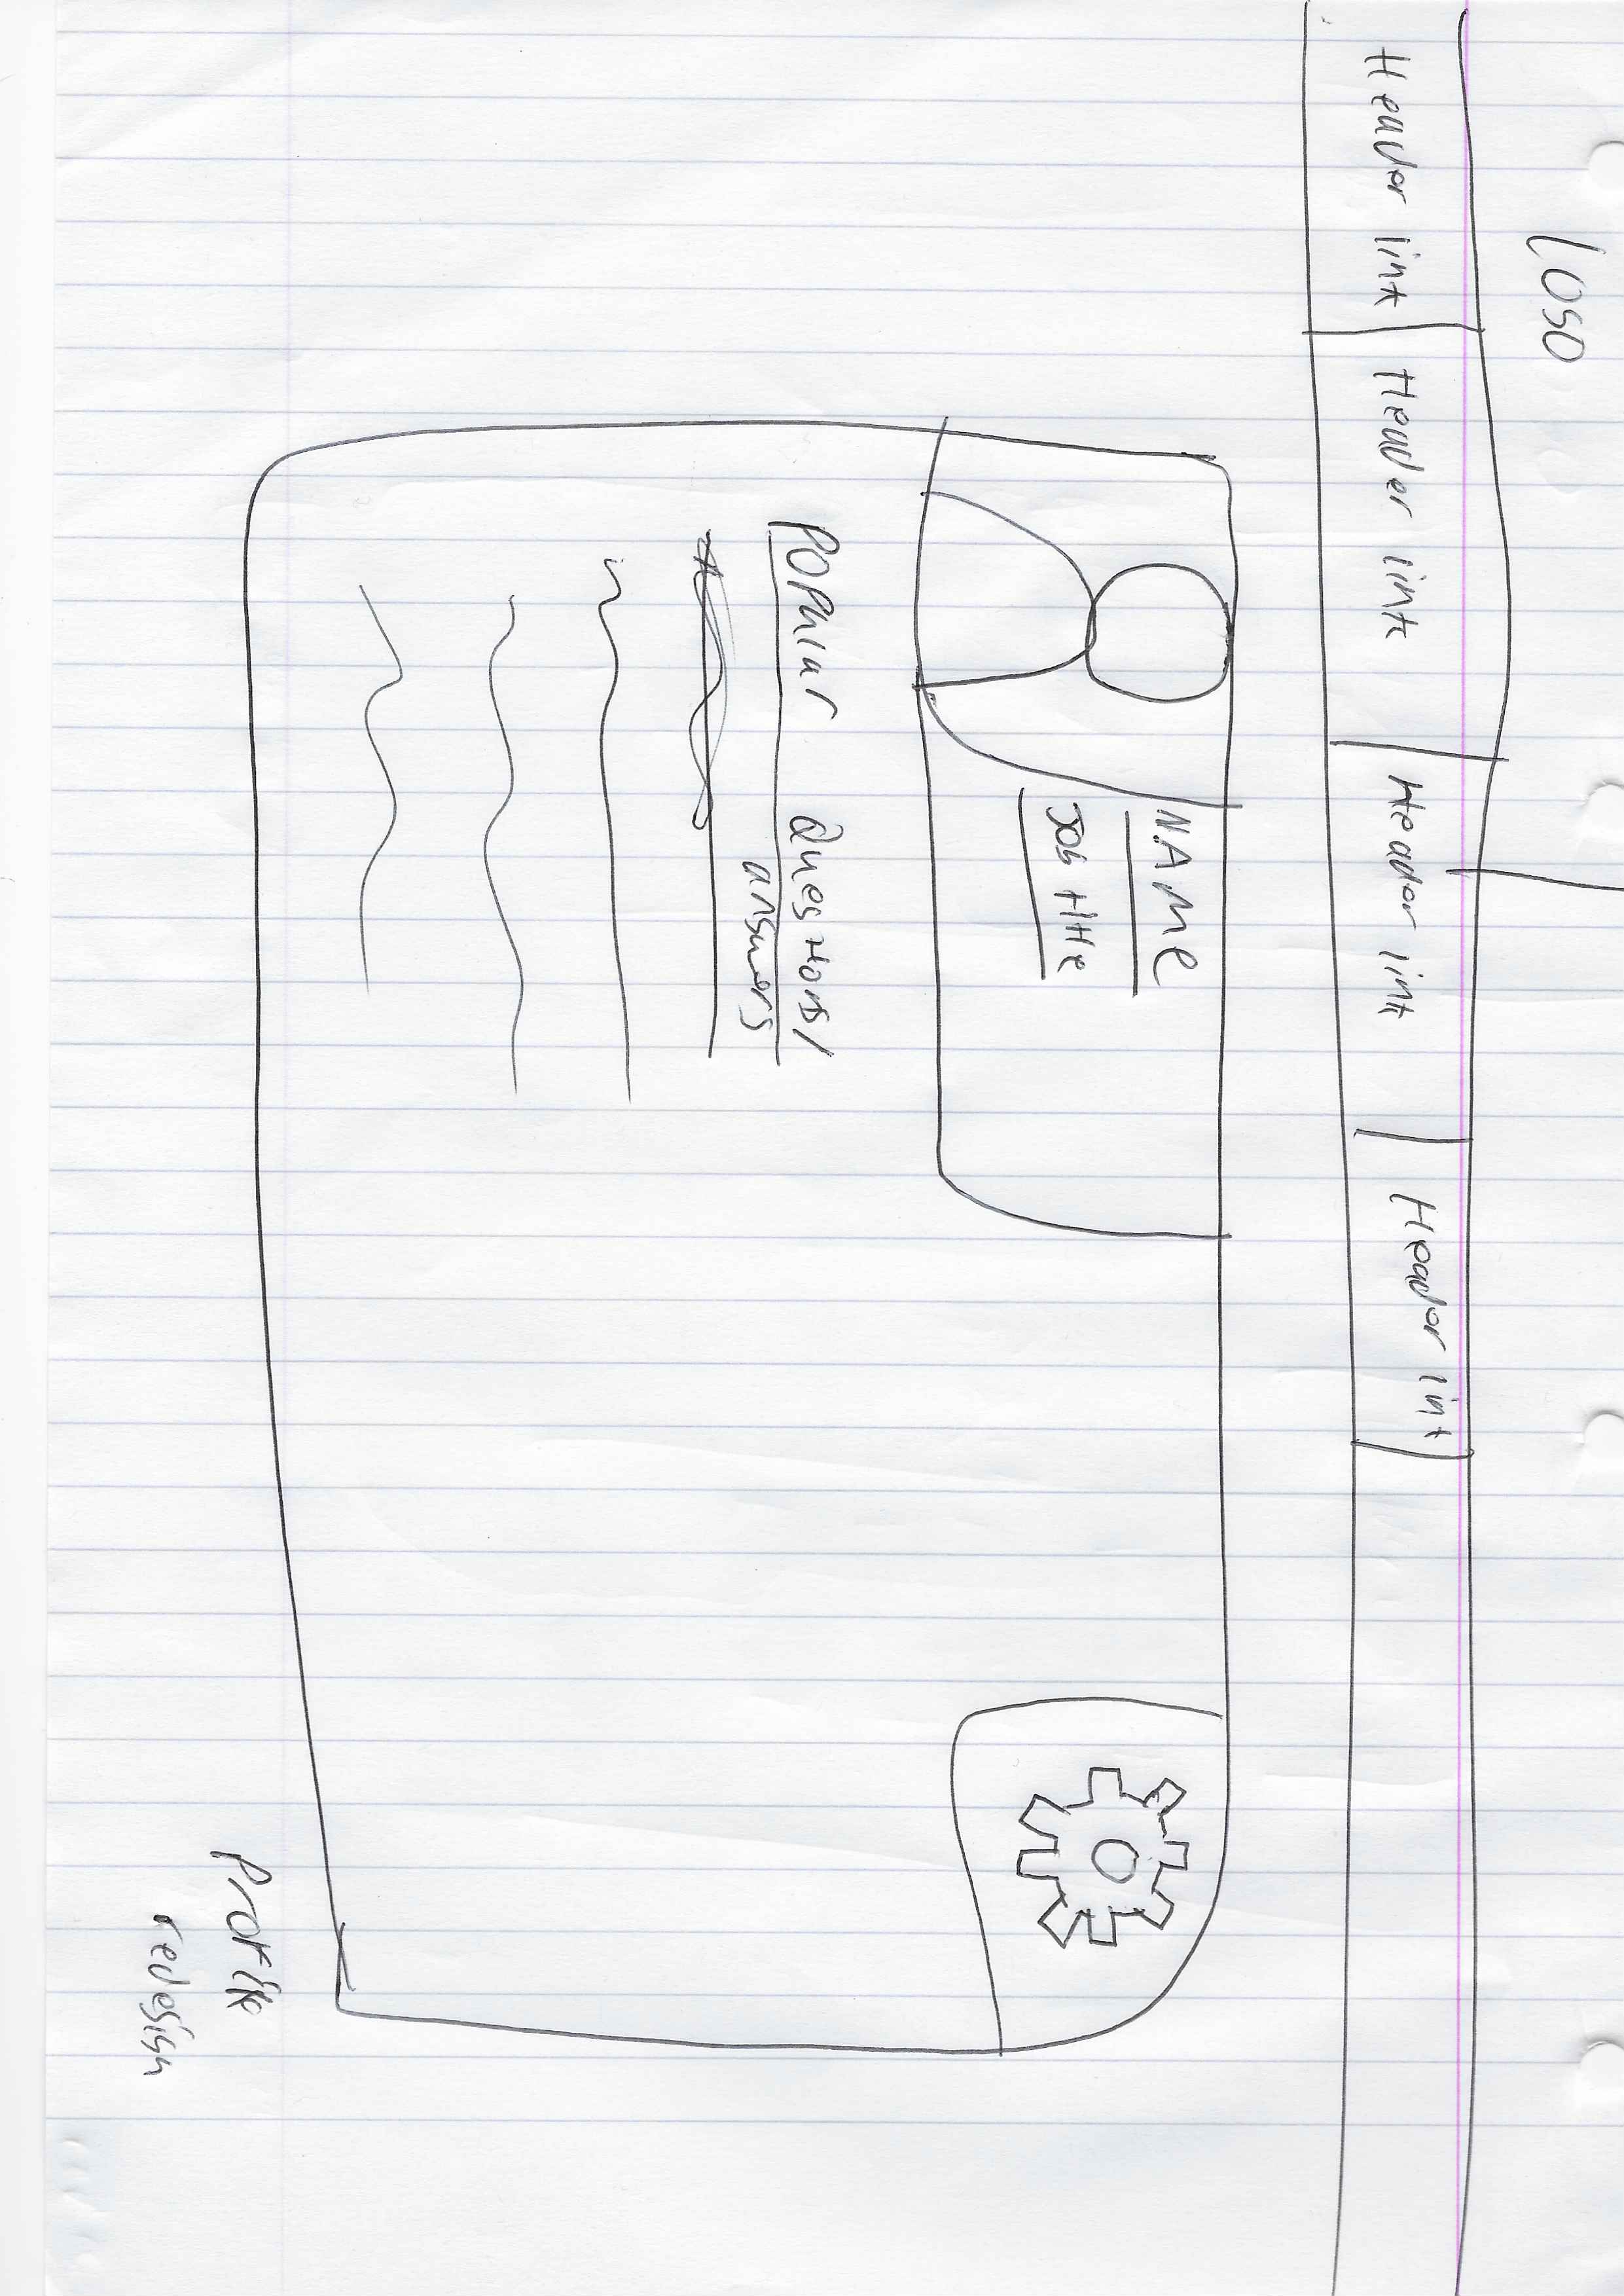 Logo
Header link Header link Header link Header link
NAME
Job title
Popular Questions/
answers
Profile
redesign